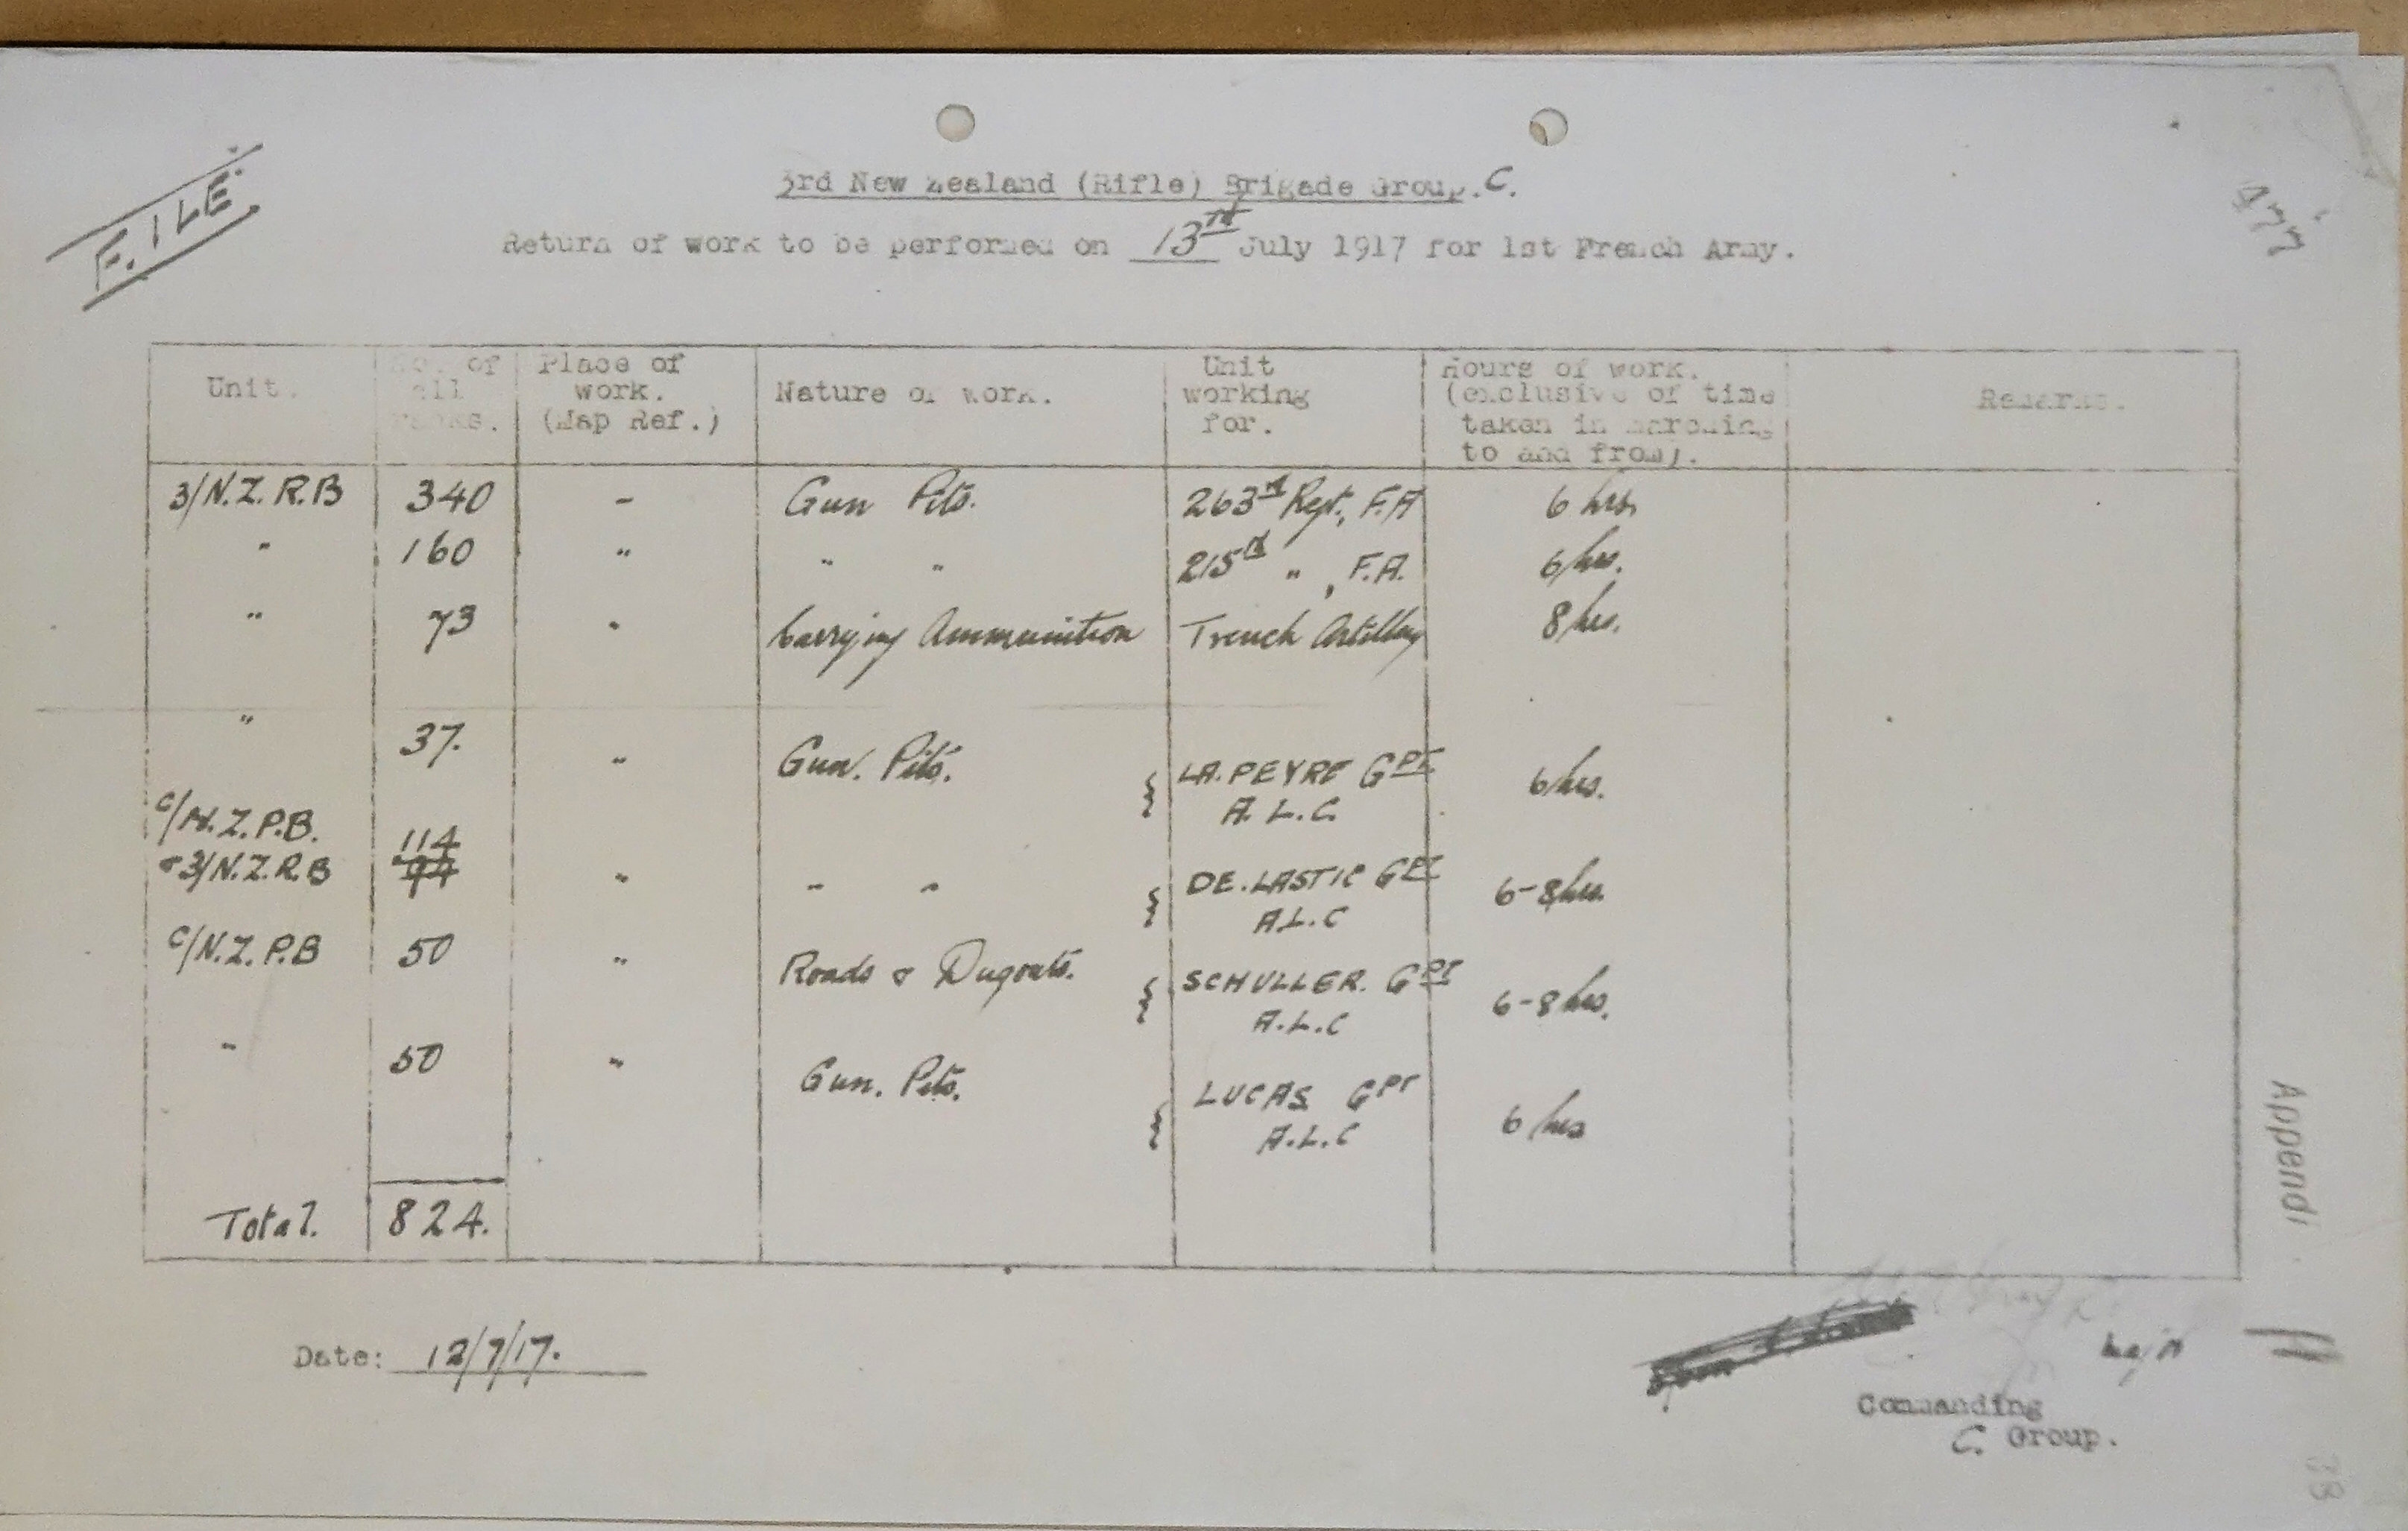 F.ILE.
3rd New Zealand (Rifle) Brigade Group. C.
Return of work to be performed on 13TH July 1917 for 1st French Army.
Unit. No. of all ranks. Place of work. (Map Ref.) Nature of work. Unit working for. Hours of work. (exclusive of time taken in marching to and from). Remarks.
3/N.Z.R.B 340 - Gun Pits. 263rd Regt., F.A 6 hrs.
" 160 " " " 215th " , F.A. 6 hrs.
" 73 " Carrying Ammunition Trench Artillery 8 hrs.
" 37. " Gun. Pits. { LA.PEYRE GPT. A.L.C. 6 hrs.
C/N.Z.P.B. & 3/N.Z.R.B 114 94 " " " { DE.LASTIC GPT A.L.C 6-8 hrs.
C/N.Z.P.B 50 " Roads & Dugouts. { SCHULLER. GPT A.L.C 6-8 hrs.
" 50 " Gun. Pits. { LUCAS GPT A.L.C 6 hrs
Total. 824.
Appendi
Date: 12/7/17.
Major
Commanding
C. Group.
33